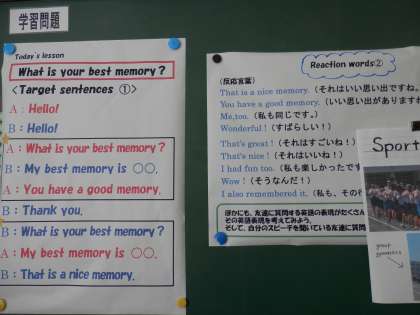 学習問題
Today's lesson
What is your best memory?
<Target sentences ①>
A: Hello!
B: Hello!
A: What is your best memory?
B: My best memory is ○○.
A: You have a good memory.
B: Thank you.
B: What is your best memory?
A: My best memory is ○○.
B: That is a nice memory.
Reaction words②
(反応言葉)
That is a nice memory.(それはいい思い出ですね。
You have a good memory.(いい思い出があります
Me,too.(私も同じです。)
Wonderful!(すばらしい!)
That's great!(それはすごいね!)
That's nice!(それはいいね!)
I had fun too.(私も楽しかったです
Wow!(そうなんだ!)
I also remembered it.(私も、その
ほかにも、友達に質問する英語の表現がたくさん
その英語表現を考えてみよう。
そして、自分のスピーチを聞いている友達に質問
Sport